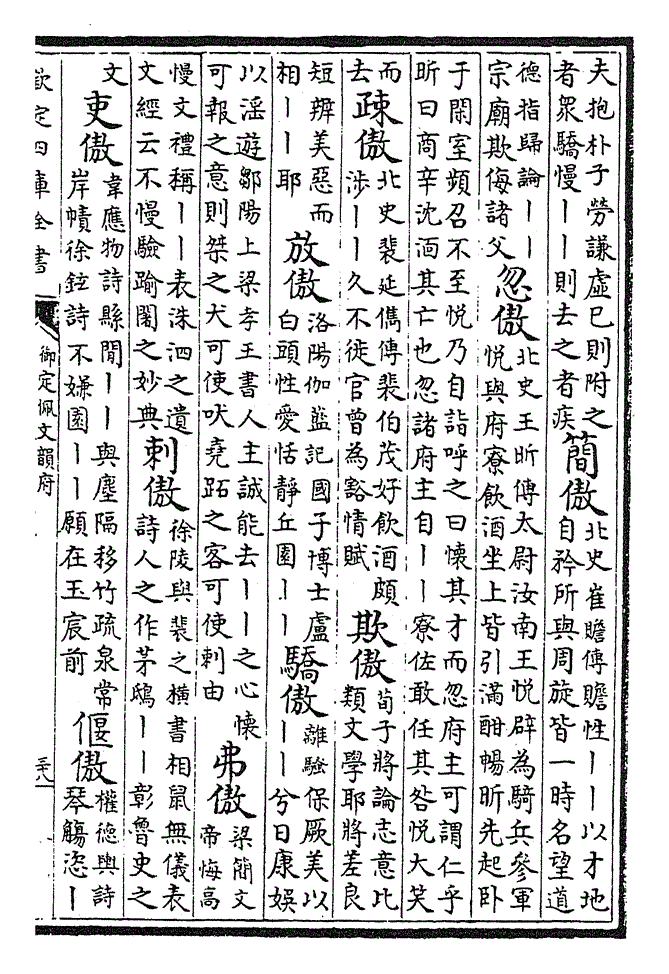 夫抱朴子勞謙虛已則附之
者眾驕慢丨丨則去之者疾
簡傲
北史崔贍傳贍性丨丨以才地
自矜所與周旋皆一時名望道
德指歸論丨丨
宗廟欺侮諸父
忽傲
北史王昕傳太尉汝南王悅辟為騎兵參軍
悅與府寮飲酒坐上皆引滿酣暢昕先起卧
于閑室頻召不至悅乃自詣呼之曰懷其才而忽府主可謂仁乎
昕曰商辛沈湎其亡也忽諸府主自丨丨寮佐敢任其咎悅大笑
而
去
疎傲
北史裴延儁傳裴伯茂好飲酒頗
涉丨丨久不徙官曾為豁情賦
欺傲
荀子將論志意比
類文學耶將差長
短辨美惡而
相丨丨耶
放傲
洛陽伽藍記國子博士盧
白頭性愛恬靜丘園丨丨
驕傲
離騷保厥美以
丨丨兮日康娛
以淫遊鄒陽上梁孝王書人主誠能去丨丨之心懷
可報之意則桀之犬可使吠堯跖之客可使刺由
弗傲
梁簡文
帝悔高
慢文禮稱丨丨表洙泗之遺
文經云不慢驗踰闍之妙典
刺傲
徐陵與裴之橫書相鼠無儀表
詩人之作茅鴟丨丨彰魯史之
文
吏傲
韋應物詩縣閒丨丨與塵隔移竹疏泉常
岸幘徐鉉詩不嫌園丨丨願在玉宸前
偃傲
權德輿詩
琴觴恣丨
欽定四庫全書
御定佩文韻府